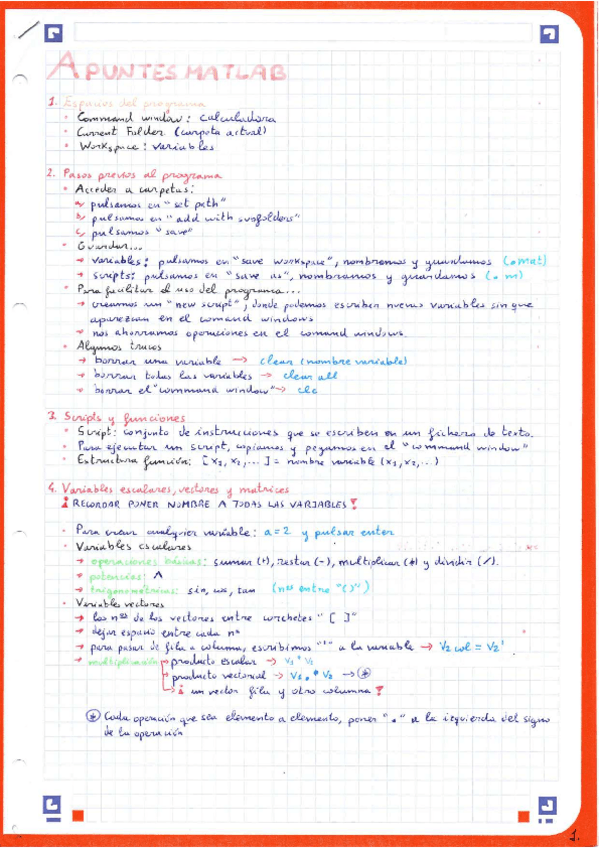 APUNTES MATLAB
1. Espacios del programa
• Command window: calculadora
• Current Folder (carpeta actual)
• Workspace: variables
2. Pasos previos al programa
• Acceder a carpetas:
a, pulsamos en "set path"
b, pulsamos en "add with subfolders"
c, pulsamos "save"
• Guardar...
→ variables: pulsamos en "save workspace", nombramos y guardamos (.mat)
→ scripts: pulsamos en "save as", nombramos y guardamos (.m)
• Para facilitar el uso del programa...
→ creamos un "new script", donde podemos escribir nuevas variables sin que
aparezcan en el comand windows
→ nos ahorramos operaciones en el comand windows.
• Algunos trucos
→ borrar una variable → clear (nombre variable)
→ borrar todas las variables → clear all
→ borrar el "command window" → clc
3. Scripts y funciones
• Script: conjunto de instrucciones que se escriben en un fichero de texto.
• Para ejecutar un script, copiamos y pegamos en el "command window"
• Estructura función: [x1, x2, ...] = nombre variable (x1, x2, ...)
4. Variables escalares, vectores y matrices
¡RECORDAR PONER NOMBRE A TODAS LAS VARIABLES!
• Para crear cualquier variable: a=2 y pulsar enter
• Variables escalares
→ operaciones básicas: sumar (+), restar (-), multiplicar (*) y dividir (/).
→ potencias: ^
→ trigonométricas: sin, cos, tan (nos entre "()")
• Variables vectores
→ los nos de los vectores entre corchetes "[ ]"
→ dejar espacio entre cada no
→ para pasar de fila a columna, escribimos "'" a la variable → V2 col = V2'
→ multiplicación → producto escalar → V1 * V2
→ producto vectorial → V1 .* V2 → (*)
→ ¡un vector fila y otro columna!
(*) Cada operación que sea elemento a elemento, poner "." a la izquierda del signo
de la operación
1.